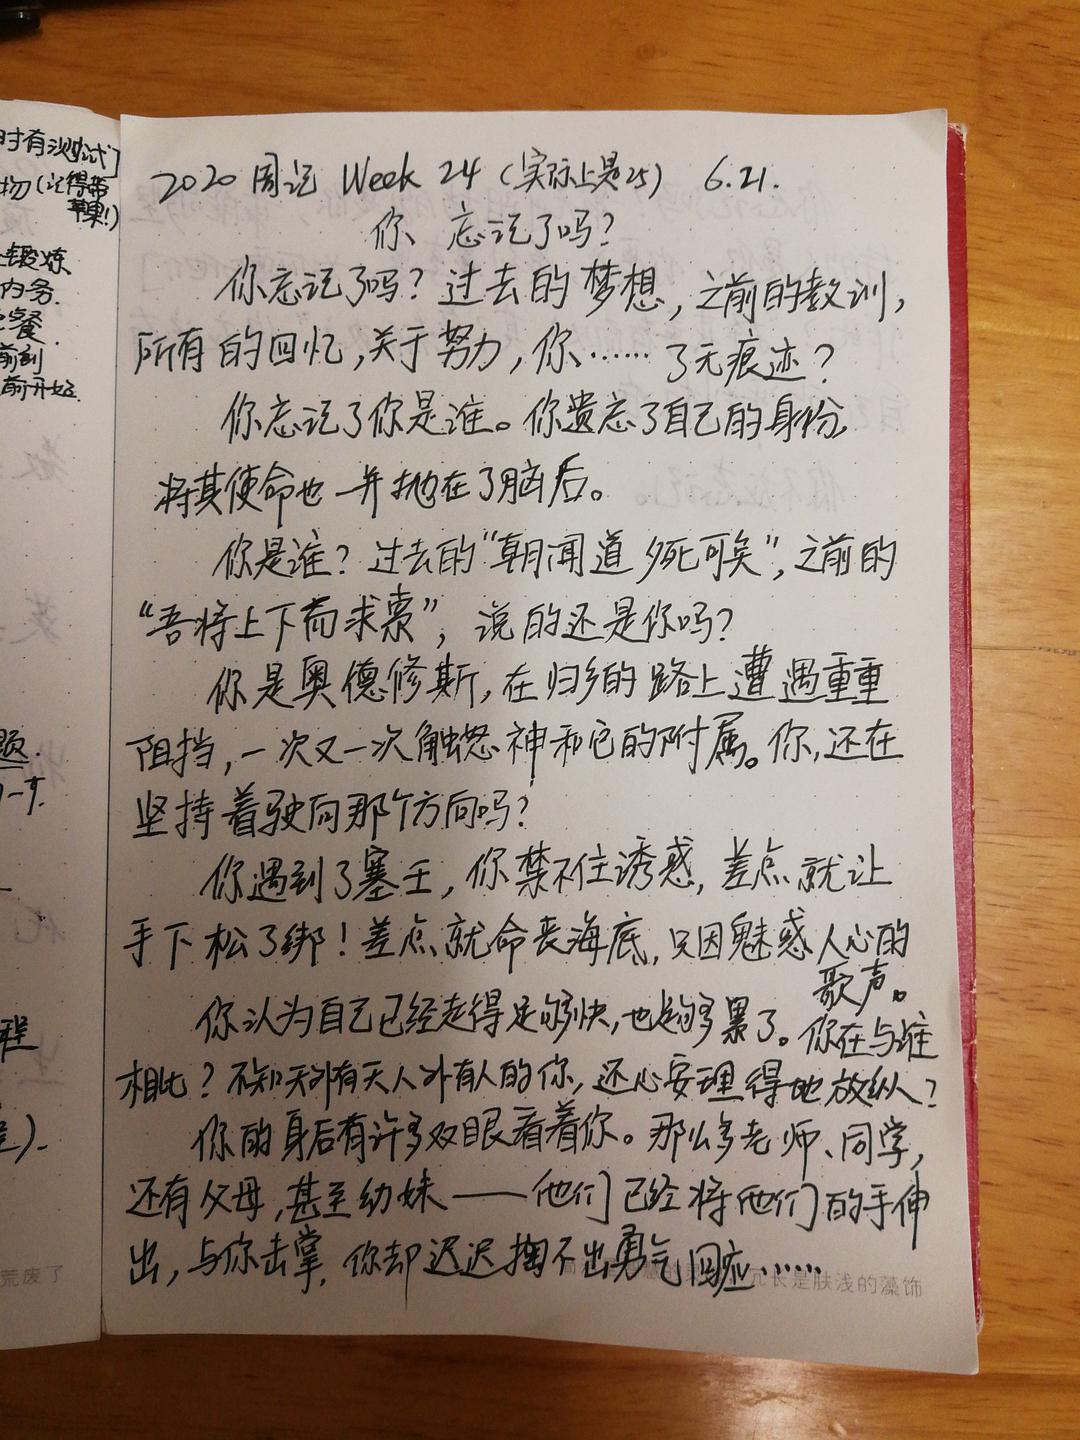 时有测试
物(记得带
苹果!)
锻炼
内务.
餐.
前到
前开始.
题.
程
荒废了
2020 周记 Week 24 (实际上是25) 6.21.
你、忘记了吗?
你忘记了吗? 过去的梦想, 之前的教训,
所有的回忆, 关于努力, 你、…… 了无痕迹?
你忘记了你是谁。你遗忘了自己的身份,
将其使命也一并抛在了脑后。
你是谁? 过去的“朝闻道 夕死可矣”, 之前的
“吾将上下而求索”, 说的还是你吗?
你是奥德修斯, 在归乡的路上遭遇重重
阻挡, 一次又一次触怒神和它的附属。你, 还在
坚持着驶向那个方向吗?
你遇到了塞壬, 你禁不住诱惑, 差点就让
手下松了绑! 差点就命丧海底, 只因魅惑人心的
歌声。
你认为自己已经走得足够快, 也足够累了。你在与谁
相比? 不知天外有天人外有人的你, 还心安理得地放纵?
你的身后有许多双眼看着你。那么多老师、同学,
还有父母, 甚至幼妹——他们已经将他们的手伸
出, 与你击掌, 你却迟迟掏不出勇气回应……
冗长是肤浅的藻饰